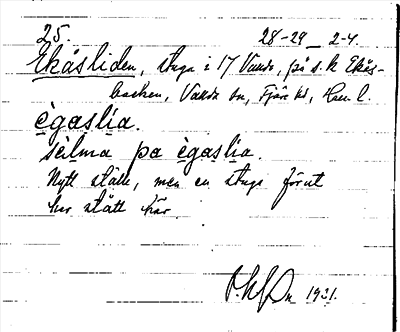 25. 28-29 2-4.
Ekåsliden, stuga i 17 Vanda, på s. k Ekås-
backen, Vanda sn, Fjäre hd, Hall l.
ègaslia.
selma pa ègaslia.
Nytt ställe, men en stuga förut
har stått här.
1931.